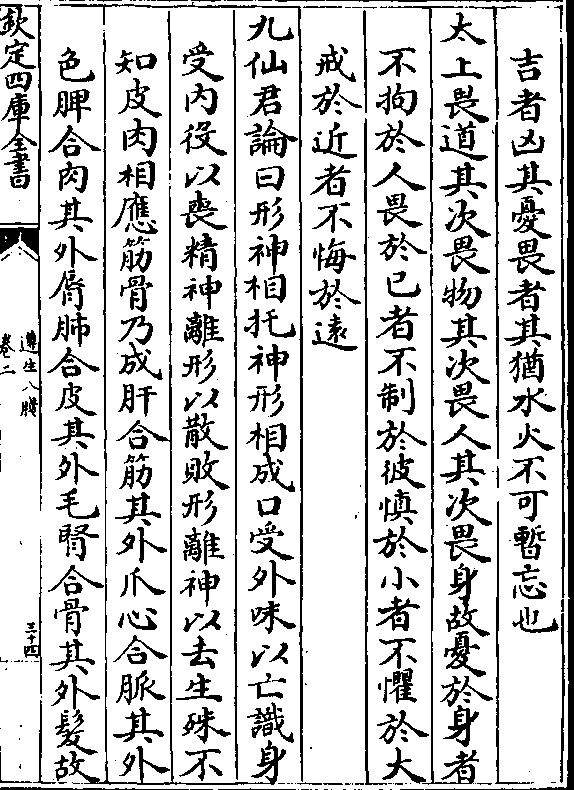 吉者凶其憂畏者其猶水火不可暫忘也
太上畏道其次畏物其次畏人其次畏身故憂於身者
不拘於人畏於已者不制於彼慎於小者不懼於大
戒於近者不悔於遠
九仙君論曰形神相托神形相成口受外味以亡識身
受内役以喪精神離形以散敗形離神以去生殊不
知皮肉相應筋骨乃成肝合筋其外爪心合脈其外
色脾合肉其外脣肺合皮其外毛腎合骨其外髮故
欽定四庫全書
遵生八牋
卷二
三十四